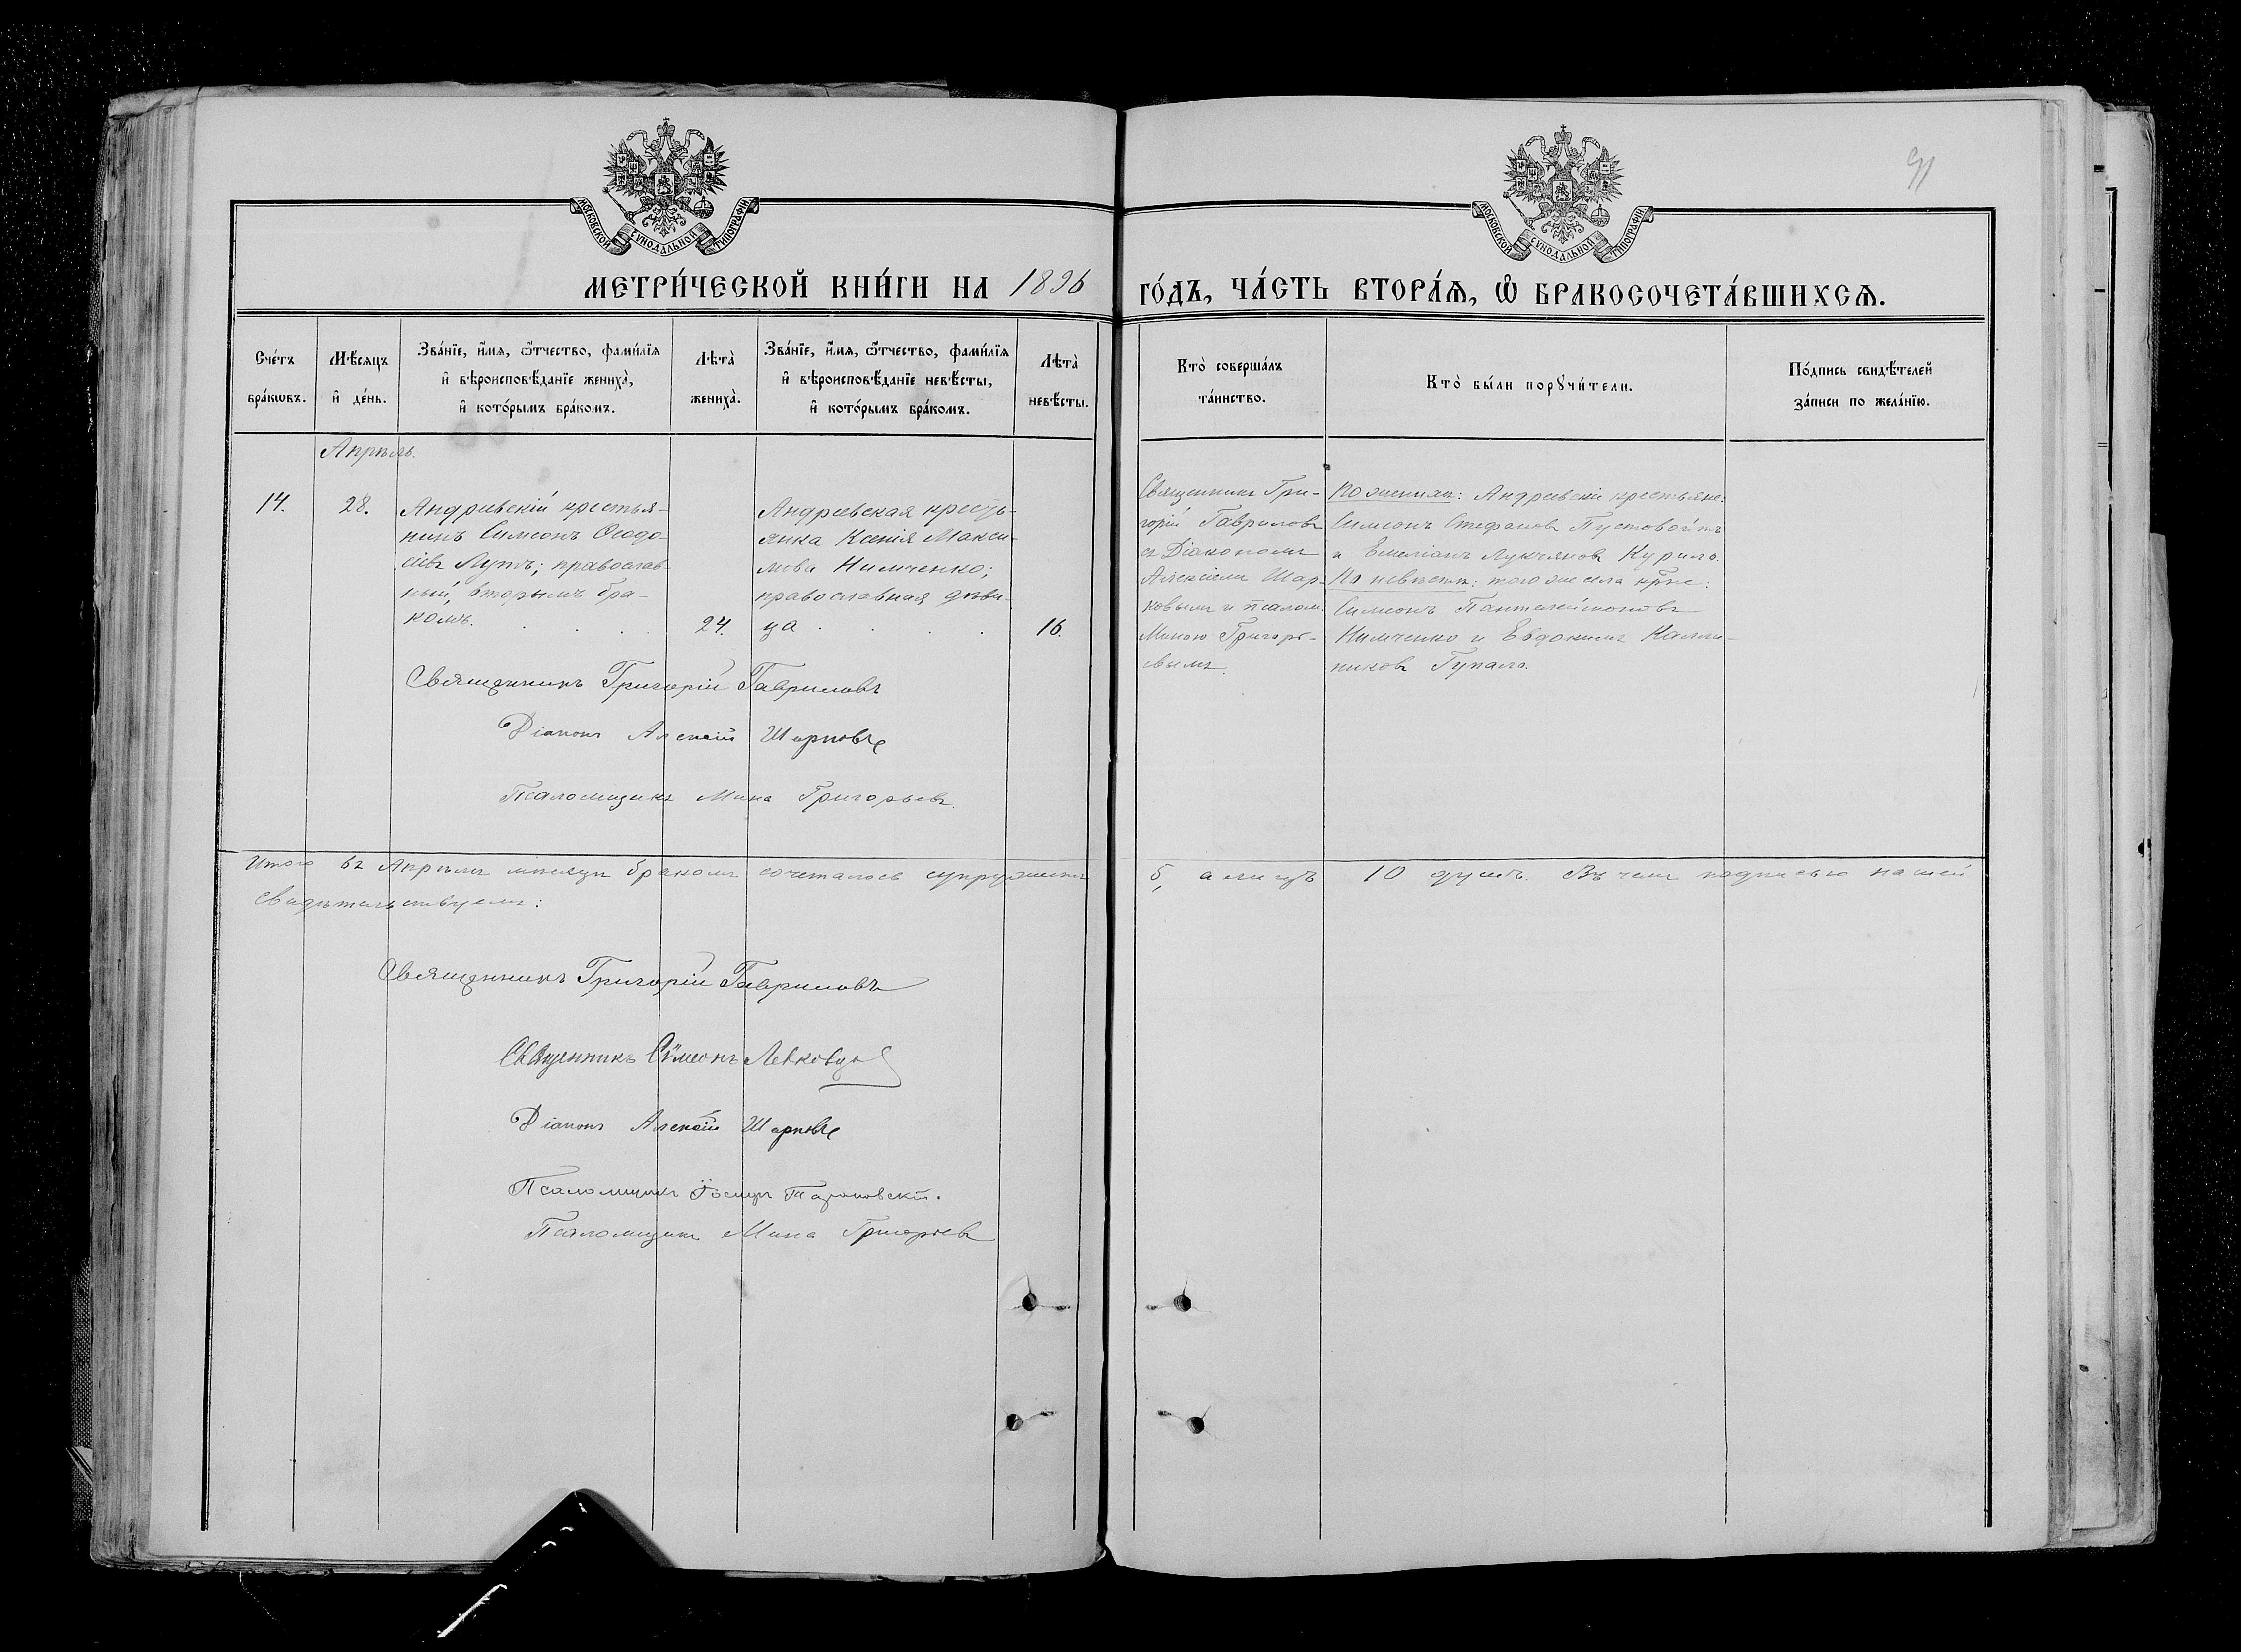 МОСКОВСКОЙ СѴНОДАЛЬНОЙ ТИПОГРАФІИ.
МОСКОВСКОЙ СѴНОДАЛЬНОЙ ТИПОГРАФІИ.
91
МЕТРИ́ЧЕСКОЙ КНИ́ГИ НА 1896
ГО́ДЪ, ЧА́СТЬ ВТОРА́Ѧ, Ѡ БРАКОСОЧЕТА́ВШИХСѦ.
Сче́тъ
бра́кѡвъ.
Мѣ́сѧцъ
и҆ де́нь.
Зва́нїе, и҆́мѧ, ѻ҆́тчество, фами́лїѧ
и҆ вѣроисповѣ́данїе жениха̀,
и҆ кото́рымъ бра́комъ.
Лѣта̀
жениха̀.
Зва́нїе, и҆́мѧ, ѻ҆́тчество, фами́лїѧ
и҆ вѣроисповѣ́данїе невѣ́сты,
и҆ кото́рымъ бра́комъ.
Лѣта̀
невѣ́сты.
Кто̀ соверша́лъ
та́инство.
Кто̀ бы́ли порꙋчи́тели.
По́дпись свидѣ́телей
за́писи по жела́нїю.
Апрѣль.
14.
28.
Андреевскій крестья-
нинъ Симеонъ Ѳеодо-
сіевъ Лупъ; православ-
ный, вторымъ бра-
комъ.
24.
Андреевская кресть-
янка Ксенія Макси-
мова Нимченко;
православная дѣви-
ца
16.
Священникъ Гри-
горій Гавриловъ
съ Діакономъ
Алексіемъ Шар-
ковымъ и псалом.
Миною Григорь-
евымъ.
По женихѣ: Андреевскіе крестьяне:
Симеонъ Стефановъ Пустовойтъ
и Емеліанъ Лукіяновъ Курило.
По невѣстѣ: того же села крне:
Симеонъ Пантелеймоновъ
Нимченко и Евдокимъ Калли-
никовъ Гупало.
Священникъ Григорій Гавриловъ
Діаконъ Алексій Шарковъ
Псаломщикъ Мина Григорьевъ.
Итого въ Апрѣлѣ мѣсяцѣ бракомъ сочеталось супружествъ 5, а лицъ 10 душъ. Въ чемъ подписью нашей
свидѣтельствуемъ:
Священникъ Григорій Гавриловъ
Священникъ Сѵмеонъ Левковцъ
Діаконъ Алексій Шарковъ
Псаломщикъ
Псаломщикъ Мина Григорьевъ